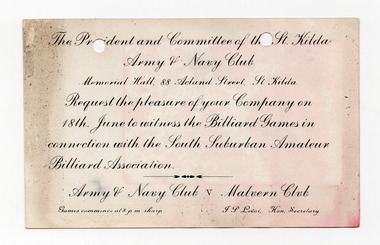 The President and Committee of the St. Kilda
Army & Navy Club
Memorial Hall, 88 Acland Street, St Kilda
Request the pleasure of your Company on
18th. June to witness the Billiard Games in
connection with the South Suburban Amateur
Billiard Association.
Army & Navy Club v Malvern Club
Games commence at 8 p.m sharp
J P Hon. Secretary